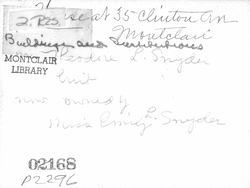 2. Res
seat 35 Clinton Ave
Montclair
Buildings and Institutions
MONTCLAIR
LIBRARY
Theodore L. Snyder
built
now owned by
Miss Emily L. Snyder
02168
P2296